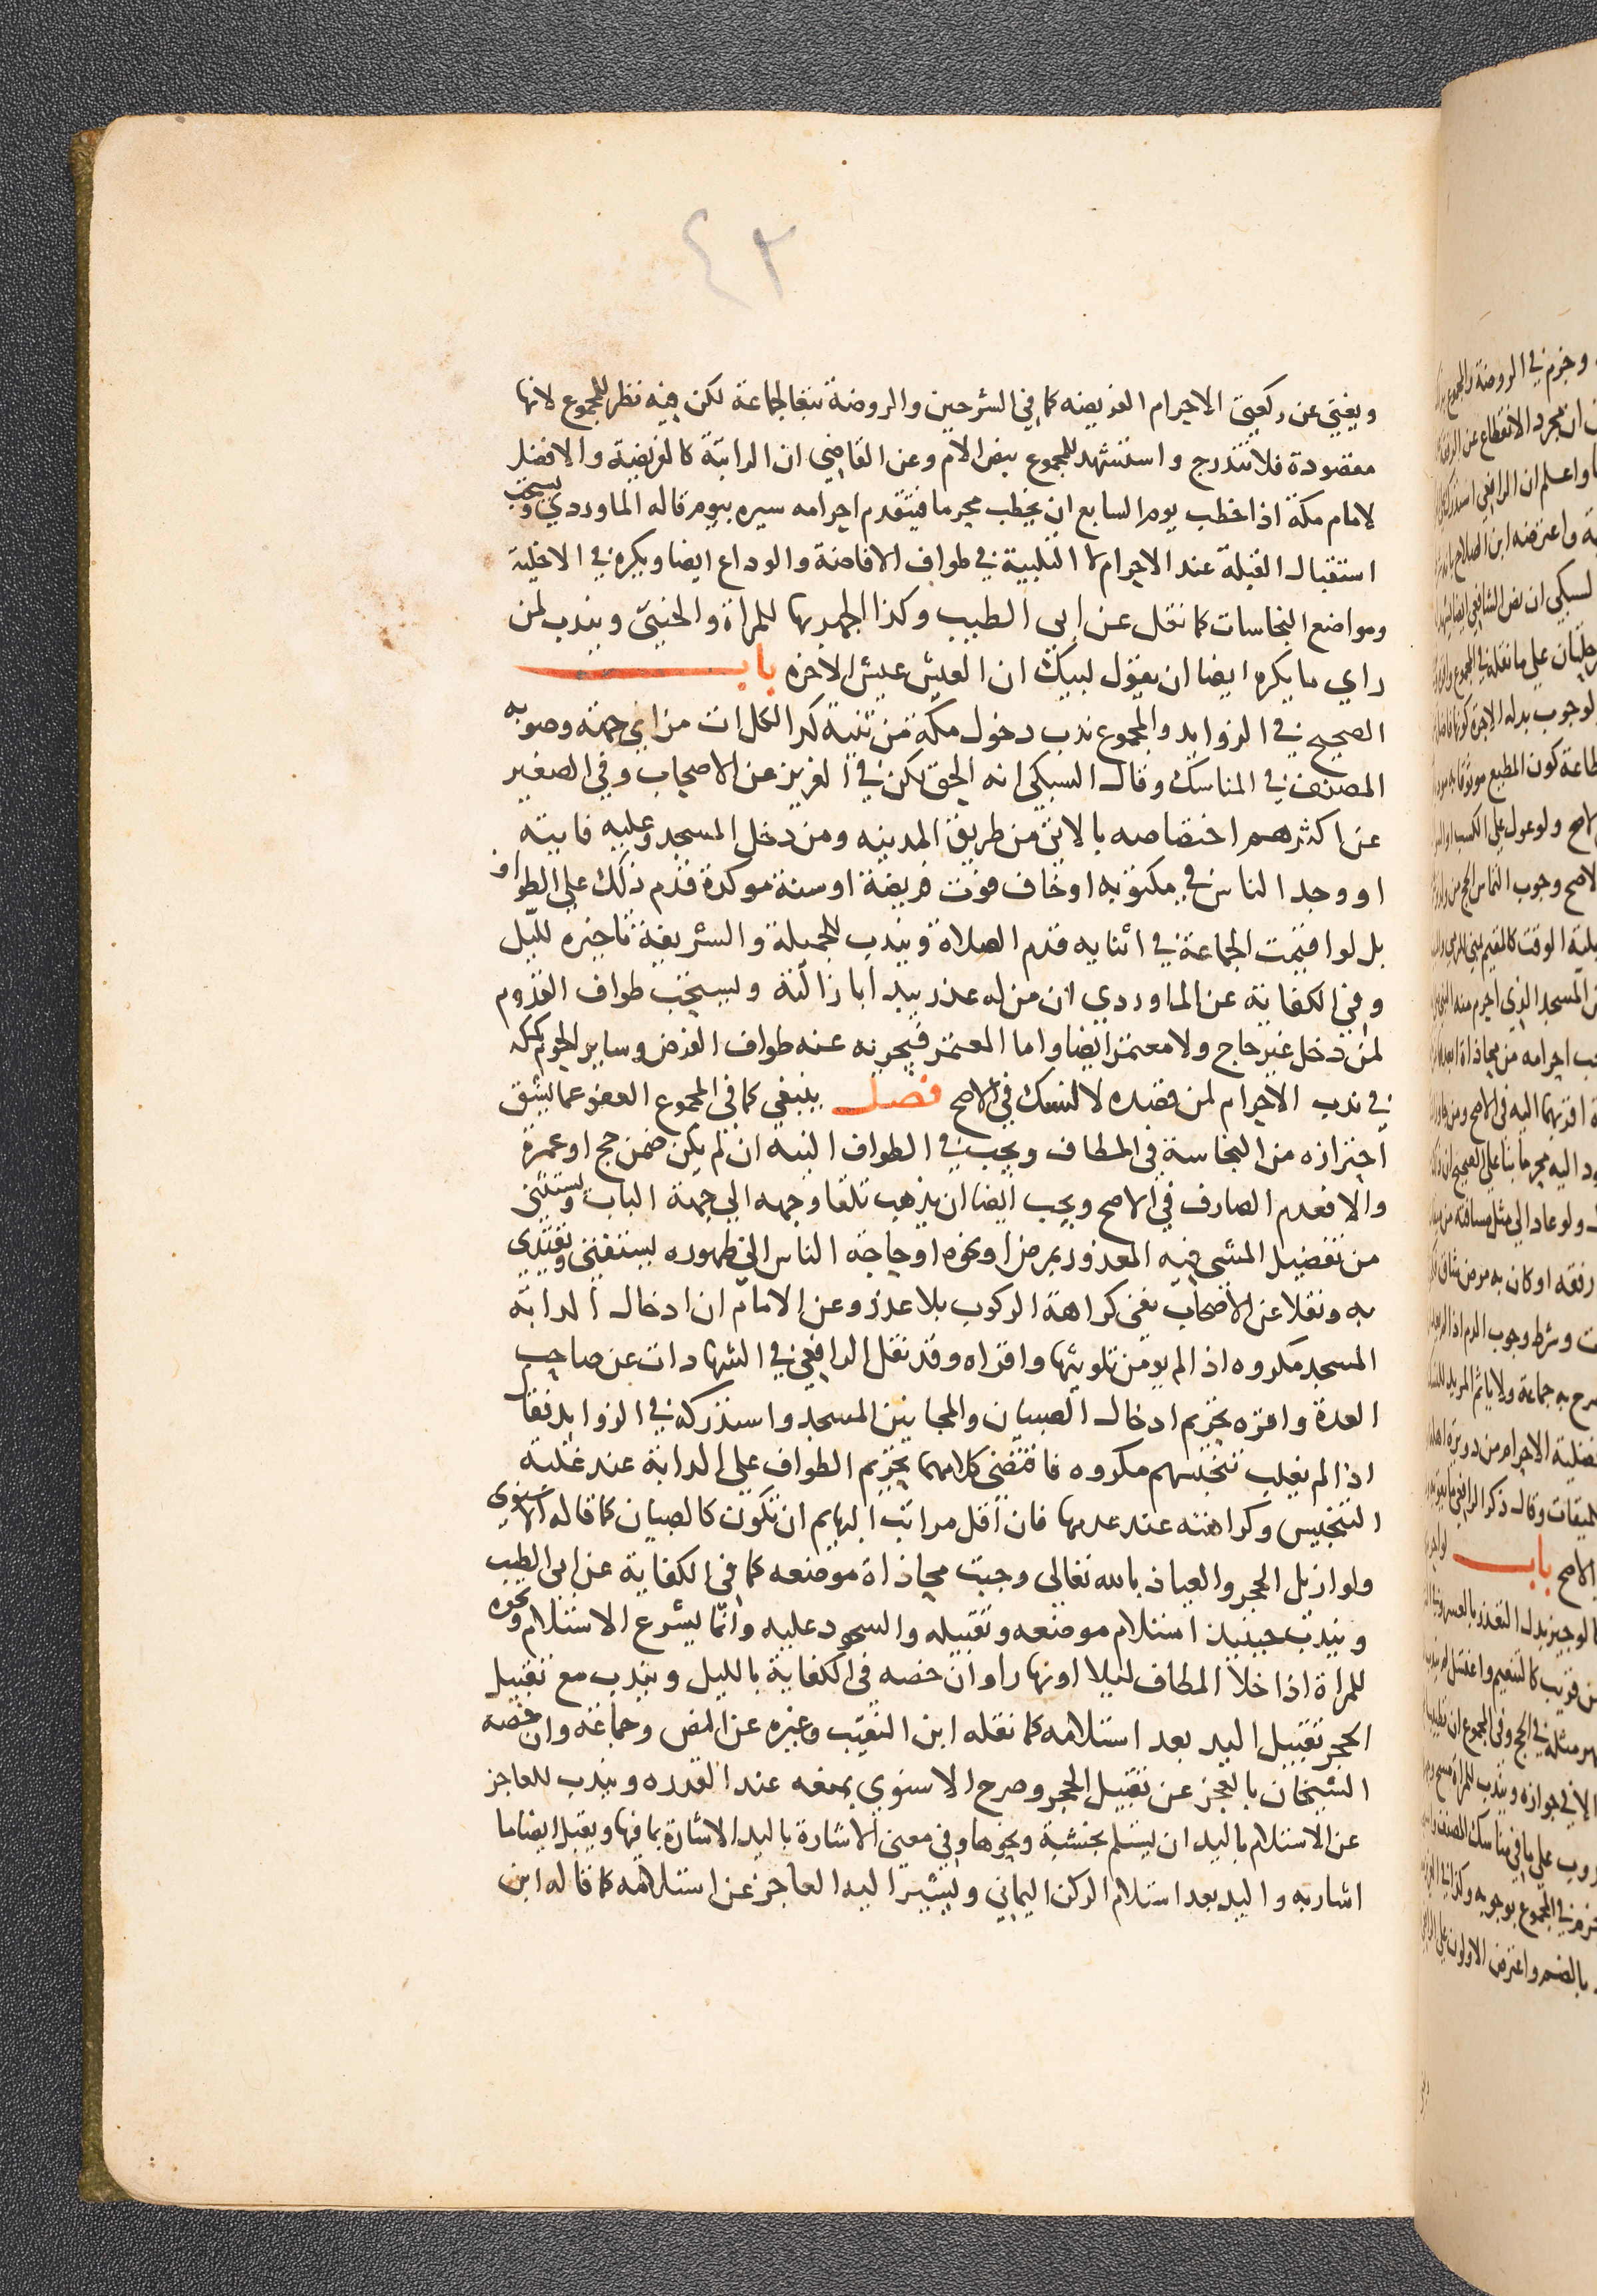 ٤٢
ويغني عن ركعتي الاحرام الفريضه كما في الشرحين والروضة تبعا لجماعة لكن فيه نظر للمجموع لانها
مقصودة فلا تندرج واستشهد للمجموع بنص الام وعن القاضي ان الراتبة كالفريضة والافضل
لامام مكة اذا خطب يوم السابع ان يخطب محرما فيتقدم احرامه سيره بيوم قاله الماوردي ويستحب
استقبال القبلة عند الاحرام لا التلبية في طواف الافاضة والوداع ايضا ويكره في الاخلية
ومواضع النجاسات كما نقل عن ابي الطيب وكذا الجهر بها للمراة والخنثى ويندب لمن
راي ما يكره ايضا ان يقول لبيك ان العيش عيش الاخره باب
الصحيح في الزوايد والمجموع ندب دخول مكة من ثنية كدا لكل ات من اي جهة وصوبه
المصنف في المناسك وقال السبكي انه الحق لكن في العزيز عن الاصحاب وفي الصغير
عن اكثرهم اختصاصه بالاتي من طريق المدينه ومن دخل المسجد وعليه فايتة
او وجد الناس في مكتوبه او خاف فوت فريضة او سنة موكدة قدم ذلك على الطواف
بل لو اقيمت الجماعة في اثنايه قدم الصلاة ويندب للجميلة والشريفة تاخيره لليل
وفي الكفاية عن الماوردي ان من له عذر يبدا بازالته ويستحب طواف القدوم
لمن دخل غير حاج ولا معتمر ايضا واما المعتمر فيجزيه عنه طواف الفرض وساير الحرم كمكه
في ندب الاحرام لمن قصده لا لنسك في الاصح فصل ينبغي كما في المجموع العفو عما يشق
احترازه من النجاسة في المطاف ويجب في الطواف النيه ان لم يكن ضمن حج او عمرة
والا فعدم الصارف في الاصح ويجب ايضا ان يذهب تلقا وجهه الي جهة الباب ويستثنى
من تفضيل المشي فيه المعذور بمرض او نحوه او حاجة الناس الي ظهوره ليستفتى ويقتدي
به ونقلا عن الاصحاب نفي كراهة الركوب بلا عذر وعن الامام ان ادخال الدابة
المسجد مكروه اذا لم يومن تلويثها واقراه وقد نقل الرافعي في الشهادات عن صاحب
العدة واقره تحريم ادخال الصبيان والمجانين المسجد واستدركه في الزوايد فقال
اذا لم يغلب تنجيسهم مكروه فاقتضى كلامهما تحريم الطواف على الدابة عند غلبة
التنجيس وكراهته عند عدمها فان اقل مراتب البهايم ان تكون كالصبيان كما قاله الاسنوي
ولو ازيل الحجر والعياذ بالله تعالى وجبت محاذاة موضعه كما في الكفاية عن ابي الطيب
ويندب حينيذ استلام موضعه وتقبيله والسجود عليه وانما يشرع الاستلام ونحوه
للمراة اذا خلا المطاف ليلا او نهارا وان خصه في الكفاية بالليل ويندب مع تقبيل
الحجر تقبيل اليد بعد استلامه كما نقله ابن النقيب وغيره عن النص وجماعة وان خصه
الشيخان بالعجز عن تقبيل الحجر وصرح الاسنوي بمنعه عند القدره ويندب للعاجز
عن الاستلام باليد ان يستلم بخشبة ونحوها وفي معنى الاشارة باليد الاشارة بما فيها ويقبل ايضا ما
اشار به واليد بعد استلام الركن اليماني ويشير اليه العاجز عن استلامه كما قاله ابن